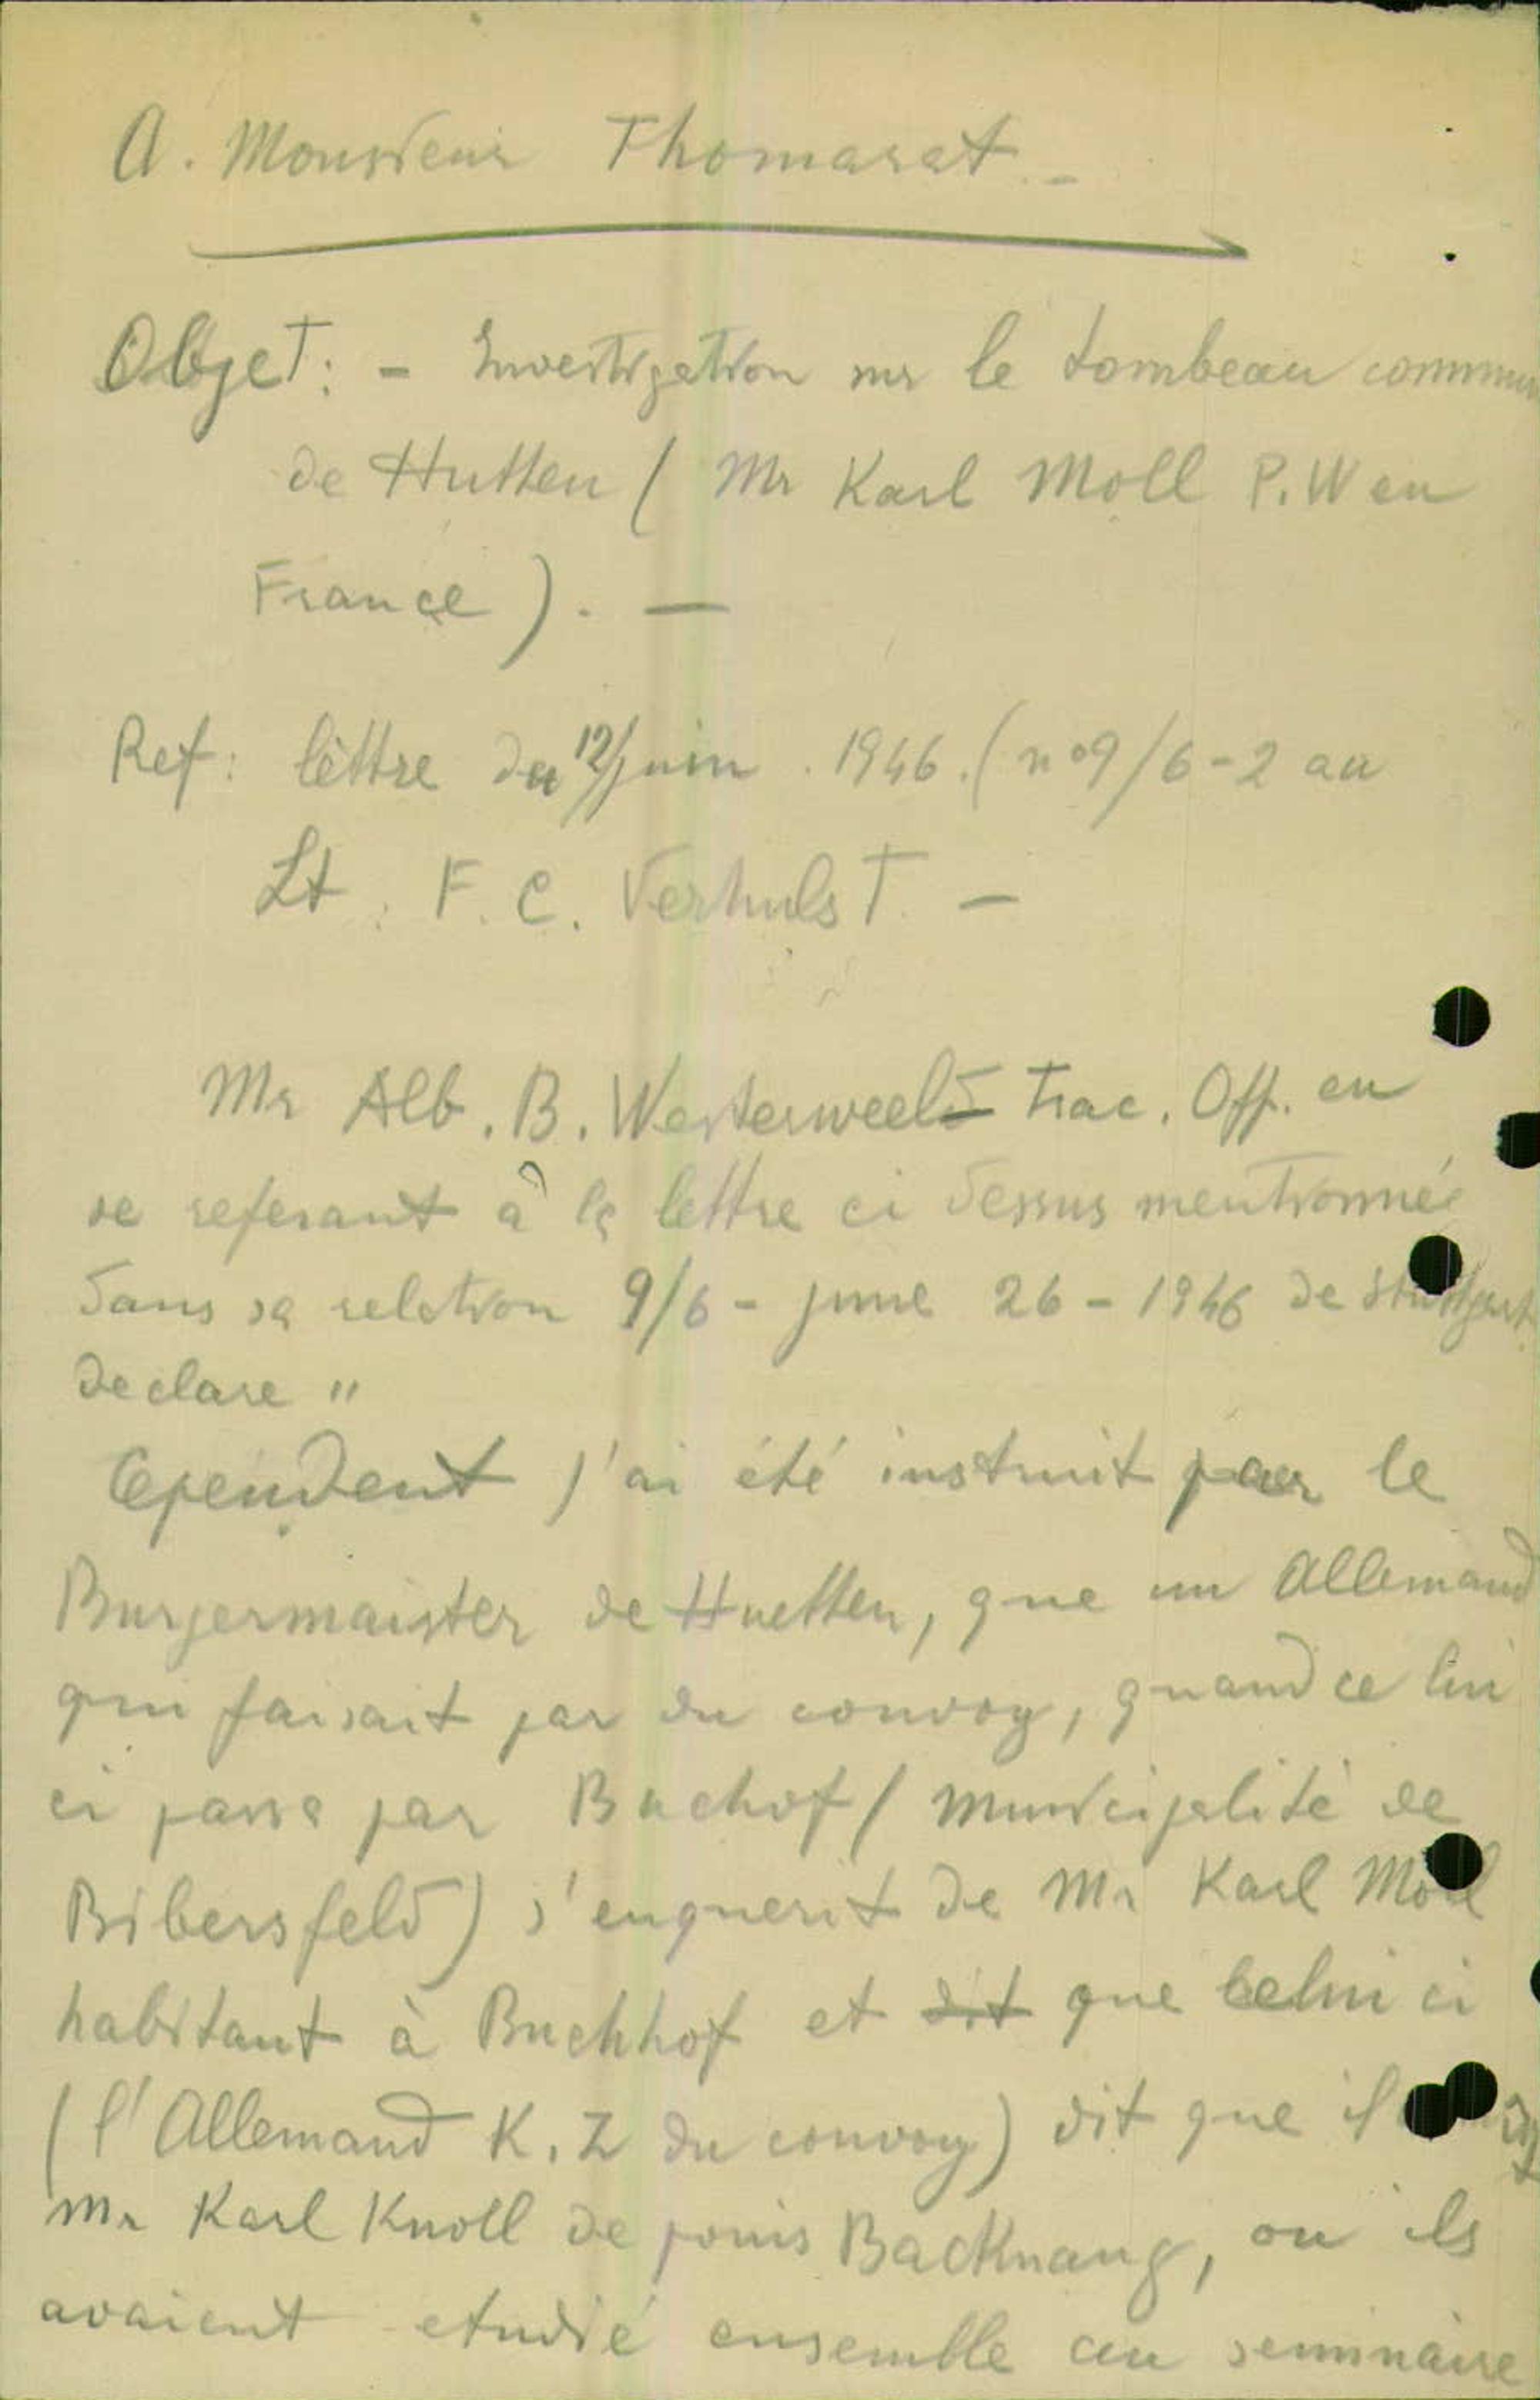 A. Monsieur Thomasat -
Objet: - Investigation sur le tombeau commun
de Hutten ( Mr Karl Moll P.W en
France ). —
Ref: lèttre du 12/juin . 1946. ( n°9/6-2 au
Lt. F. C. Verhulst. —
Mr Alb. B. Westerweeld Trac. Off. en
se referant à la lettre ci dessus mentionnée
dans sa relation 9/6 - june 26 - 1946 de Stuttgart
declare "
Cependent j'ai été instruit par le
Burgermaister de Huetten, que un Allemand
qui faisait par du convoy, quand ce lui
ci passa par Buchof ( municipalité de
Bibersfeld) s'enquerit de Mr Karl Moll
habitant à Buchhof et dit que celui ci
( l'Allemand K.Z du convoy) dit que il
Mr Karl Knoll de puis Backnang, ou ils
avaient etudié ensemble au seminaire